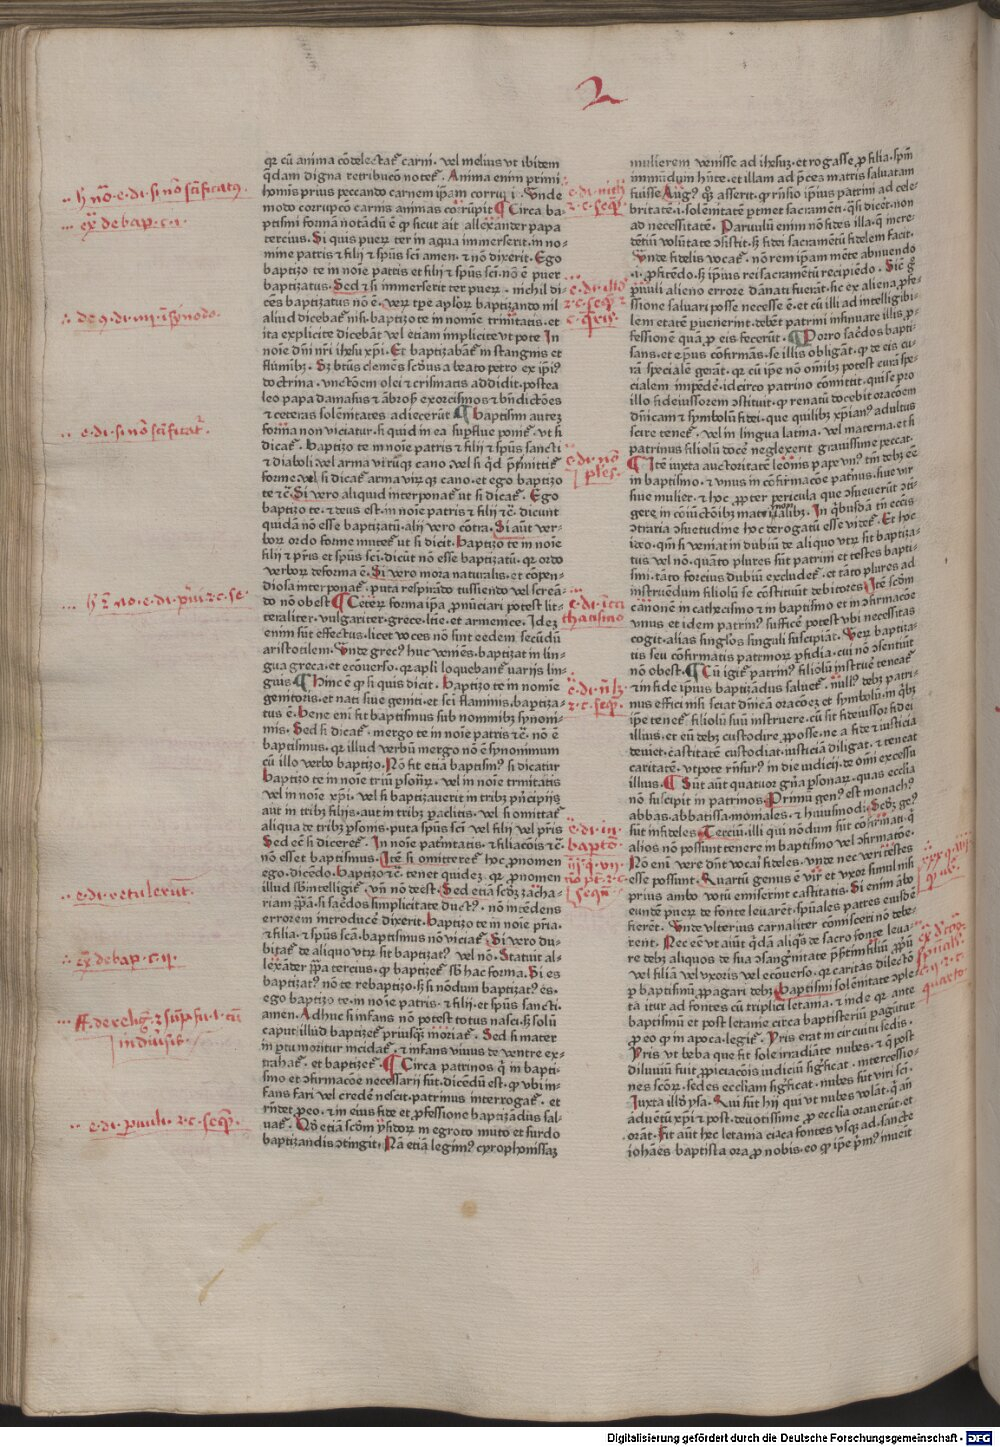 2
qr cū anima cōdelectat᷑ carni · vel melius vt ibidem
q̄dam digna retribucō notet᷑ · Anima enim primi
hoīnis prius peccando carnem ip̄am corrupit · Vnde
modo corrupcō carnis animas corrūpit ¶ Circa ba-
ptismi formā notādū ē ꝙ sicut ait allexander papa
tercius · Si quis pueꝝ ter in aqua immerserit · in no-
mine patris ⁊ filij ⁊ spūs sci amen · ⁊ nō dixerit · Ego
baptizo te in noīe patris et filij ⁊ spūs sci · nō ē puer
baptizatus · Sed ⁊ si immerserit ter pueꝝ · nichil di-
cēs baptizatus nō ē · veꝝ tpe aploꝝ baptizando nil
aliud dicebāt nisi · baptizo te in nomine trinitatis · et
ita explicite dicebāt vel etiam implicite vt pote In
noīe dnī nri ihesu xp̄i · Et baptizabāt in stangnis et
fluminibꝫ · Sꝫ btūs clemēs scdus a beato petro ex ipī⁹
doctrina · vnctōem olei ⁊ crismatis addidit · postea
leo papa damasus ⁊ ābrosī⁹ exorcismos ⁊ bn̄dictōes
⁊ ceteras solēnitates adiecerūt ¶ Baptismi autem
forma non viciatur · si quid in ea supflue ponit᷑ · vt si
dicat᷑ · Baptizo te in noīe patris ⁊ filij ⁊ spūs sancti
⁊ diaboli vel arma virūqꝫ cano vel si qd p̄mittit᷑
forme vel si dicat᷑ arma virūqꝫ cano · et ego baptizo
te ⁊c̄ · Si vero aliquid interponat᷑ ut si dicat᷑ · Ego
baptizo te · ⁊ deus est · in noīe patris ⁊ filij ⁊c̄ · dicunt
quidā nō esse baptizatū · alij vero cōtra · Si aūt ver-
boꝝ ordo forme mutet᷑ ut si dicit · Baptizo te in noīe
filij ⁊ pr̄is et spūs sci · dicūt nō esse baptizatū · qr ordo
verboꝝ deforma ē · Si vero mora naturalis · et cōpen-
diosa interponat᷑ · puta respirādo tussiendo vel screā-
do nō obest ¶ Ceterū forma ip̄a pnūciari potest lit-
teraliter · vulgariter · grece · ltīe · et armenice · Idez
enim sūt effectus · licet voces nō sint eedem secūdū
aristotilem · Vnde grec⁹ huc veniēs · baptizat in lin-
gua greca · et ecōuerso · qr apli loquebant᷑ varijs lin-
guis ¶ Hinc ē ꝙ si quis dicit · Baptizo te in nomine
genitoris · et nati siue geniti · et sci flaminis · baptiza-
tus ē · Bene enī fit baptismus sub nominibꝫ synoni-
mis · Sed si dicat᷑ · mergo te in noīe patris ⁊c̄ · nō ē
baptismus · qr illud verbū mergo nō ē synonimum
cū illo verbo baptizo · Nō fit etiā baptism⁹ si dicatur
Baptizo te in noīe triū psonaꝝ · vel in noīe trinitatis
vel in noīe xp̄i · vel si baptizauerit in tribꝫ principijs
aut in tribꝫ filijs · aut in tribꝫ paclitis · vel si omittat᷑
aliqua de tribꝫ psonis · puta spūs sci vel filij vel pr̄is
Sed et si diceret᷑ · In noīe patnitatis · ⁊ filiacōis ⁊c̄ ·
nō esset baptismus · Itē si omitteret᷑ hoc pnomen
ego · dicēdo · Baptizo ⁊c̄ · tenet quidez · qr pnomen
illud sbintelligit᷑ · vn̄ nō deest · Sed etiā scdꝫ zacha-
riam pp̄ā · si sacdos simplicitate duct⁹ · nō intēdens
errorem introducē dixerit · Baptizo te in noīe pr̄ia ·
⁊ filia · ⁊ spūs scā · baptismus nō viciat᷑ · Si vero du-
bitat᷑ de aliquo vtꝝ sit baptizat⁹ vel nō · Statuit al-
lexāder pp̄a tercius · ꝙ baptizet᷑ sb hac forma · Si es
baptizat⁹ nō te rebaptizo · sꝫ si nōdum baptizat⁹ es ·
ego baptizo te · in noīe patris · ⁊ filij · et spūs sancti ·
amen · Adhuc si infans nō potest totus nasci · sꝫ solū
caput · illud baptizet᷑ priusqꝫ moriat᷑ · Sed si mater
in ptu moritur incidat᷑ · ⁊ infans viuus de ventre ex-
trahat᷑ · et baptizet᷑ ¶ Circa patrinos q̄ in bapti-
smo et ɔfirmacōe necessarij sūt · dicēdū est · ꝙ vbi in-
fans fari vel credē nescit · patrinus interrogat᷑ · et
rn̄det p eo · ⁊ in eius fide et pfessione baptizādus sal-
uat᷑ · Nō etiā scōm ysidoꝝ in egroto muto et surdo
baptizandis ɔtingit · Nā etiā legim⁹ cyrophonissaꝫ
mulierem venisse ad ihesuꝫ · et rogasse p filia · spm̄
immūdum hn̄te · et illam ad pces matris saluatam
fuisse Aug⁹ q̄ꝫ asserit · ꝙ rn̄sio ipius patrini ad cele-
britatē · i · solēnitatē ptinet sacramēti · q̄si dicēt · non
ad necessitatē · Paruulū enim nō fides illa · q̄ incre-
dētiū volūtate ɔsistit · sꝫ fidei sacramētū fidelem facit ·
Vnde fidelis vocat᷑ · nō rem ipam mēte abnuendo
· i · pfitēdo · sꝫ ipius rei sacramētū recipiēdo · Sic g°
puuli alieno errore dānati fuerāt · sic ex aliena pfe-
ssione saluari posse necesse ē · et cū illi ad intelligibi-
lem etatē puenerint · debēt patrini insinuare illis p-
fessionē quā p eis fecerūt · ¶ Porro sacdos bapti-
sans · et epus cōfirmās · se illis obligāt · ꝙ de eis cu-
rā speciale gerāt · qr cū ipe nō omībꝫ potest curā spe-
cialem impēdē · idcirco patrino cōmittit · qui se pro
illo fideiussorem ɔstituit · ꝙ renatū docebit oracōem
dnīcam ⁊ symbolū fidei · que quilibꝫ xpian⁹ adultus
scire tenet᷑ · vel in lingua latina · vel materna · et si
patrinus filiolū docē neglexerit grauissime peccat ·
¶ Itē iuxta auctoritatē leōnis pape vn⁹ tm̄ debꝫ eē
in baptismo · ⁊ vnus in cōfirmacōe patrin⁹ · siue vir
siue mulier · ⁊ hoc ppter pericula que ɔsueuerūt ɔti-
gere in cōiūctōibꝫ matrimonialibꝫ · In q̄busdā tn̄ eccīis
ɔtraria ɔsuetudine hoc derogatū esse videt᷑ · Et hoc
ideo · qm̄ si veniat in dubiū de aliquo vtꝝ sit baptiza-
tus vel nō · quāto plures sūt patrini et testes bapti-
smi · tāto forcius dubiū excludet᷑ · et tāto plures ad
instruēdum filiolū se cōstituūt debitores · Itē scōm
canonē in cathecismo ⁊ in baptismo et in ɔfirmacōe
vnus et idem patrin⁹ sufficē potest vbi necessitas
cogit · alias singlos singuli suscipiāt · Veꝝ baptiza-
tis seu cōfirmatis patrinoꝝ pfidia · cui nō ɔsentiūt
nō obest · ¶ Cū igit᷑ patrin⁹ filiolū instruē teneat᷑
⁊ in fide ipius baptizādus saluet᷑ · null⁹ debꝫ patri-
nus effici nisi sciat dnīcā oracōeꝫ et symbolū · in q̄bꝫ
ipe tenet᷑ filiolū suū instruere · cū sit fideiussor fidei
illius · et eū debꝫ custodire p posse · ne a fide ⁊ iusticia
deuiet · castitatē custodiat · iusticiā diligat · ⁊ teneat
caritatē · vt pote rn̄sur⁹ in die iudicij · de omī excessu
illius · ¶ Sūt aūt quatuor gn̄a psonaꝝ · quas ecclia
nō suscipit in patrinos · Primū gen⁹ est monach⁹
abbas · abbatissa · moniales · ⁊ huiusmodi · Scdꝫ ge⁹
sūt infideles · Terciū · illi qui nōdum sūt cōfirmati · q̄
alios nō possunt tenere in baptismo vel ɔfirmatōe ·
Nō enī vere dnt vocari fideles · vnde nec veri testes
esse possunt · Quartū genus ē vir et vxor simul nisi
prius ambo votū emiserint castitatis · Si enim ābo
eundē pueꝝ de fonte leuarēt · spūales patres eiusdē
fierēt · Vnde vlterius carnaliter cōmisceri nō debe-
rent · Nec eē vt aiūt q̄dā aliq̄s de sacro fonte leua-
re debꝫ aliquos de sua ɔsanguinitate pximi siliū ppū
vel filiā vel vxoris vel ecōuerso · qr caritas dilectō
p baptismū ppagari debꝫ · Baptismi solēnitate ɔple-
ta itur ad fontes cū triplici letania · ⁊ inde qr ante
baptismū et post letanie circa baptisteriū pagūtur
p eo ꝙ in apoca · legit᷑ · Yris erat in circuitu sedis ·
Yris vt beda que fit sole irradiāte nubes · ⁊ q̄ post
diluuiū fuit ppiciacōis iudiciū significat · intercessio-
nes scōꝝ · sedes eccliam significat · nubes sūt viri sci ·
Iuxta illd psa · Qui sūt hij qui vt nubes volāt · q̄ an̄
aduētū xp̄i ⁊ post · deuotissime p ecclia orauerūt · et
orāt · Fit aūt hec letania circa fontes vsqꝫ ad · sancte
iohānes baptista ora p nobis · eo ꝙ ipe prim⁹ inuenit
e · di · retulerūt ·
ex̄ de bap · c · ij ·
e · di · puuli · ⁊ · c · seqn̄ ·
Digitalisierung gefördert durch die Deutsche Forschungsgemeinschaft - DFG